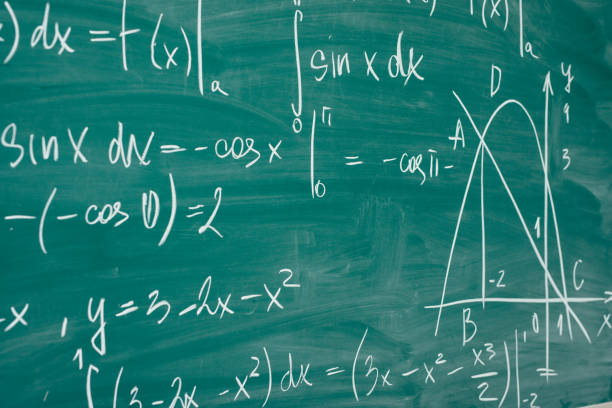 ) dx = f(x)|ₐ
(x)|ₐ
∫₀ sin x dx
sin x dx = -cos x |₀^π = -cos π -
-(-cos 0) = 2
-x , y = 3 - 2x - x²
∫¹ (3 - 2x - x²) dx = (3x - x² - x³/2)|₋₂ =
D
y
A
3
1
-2
C
B
0
1
x